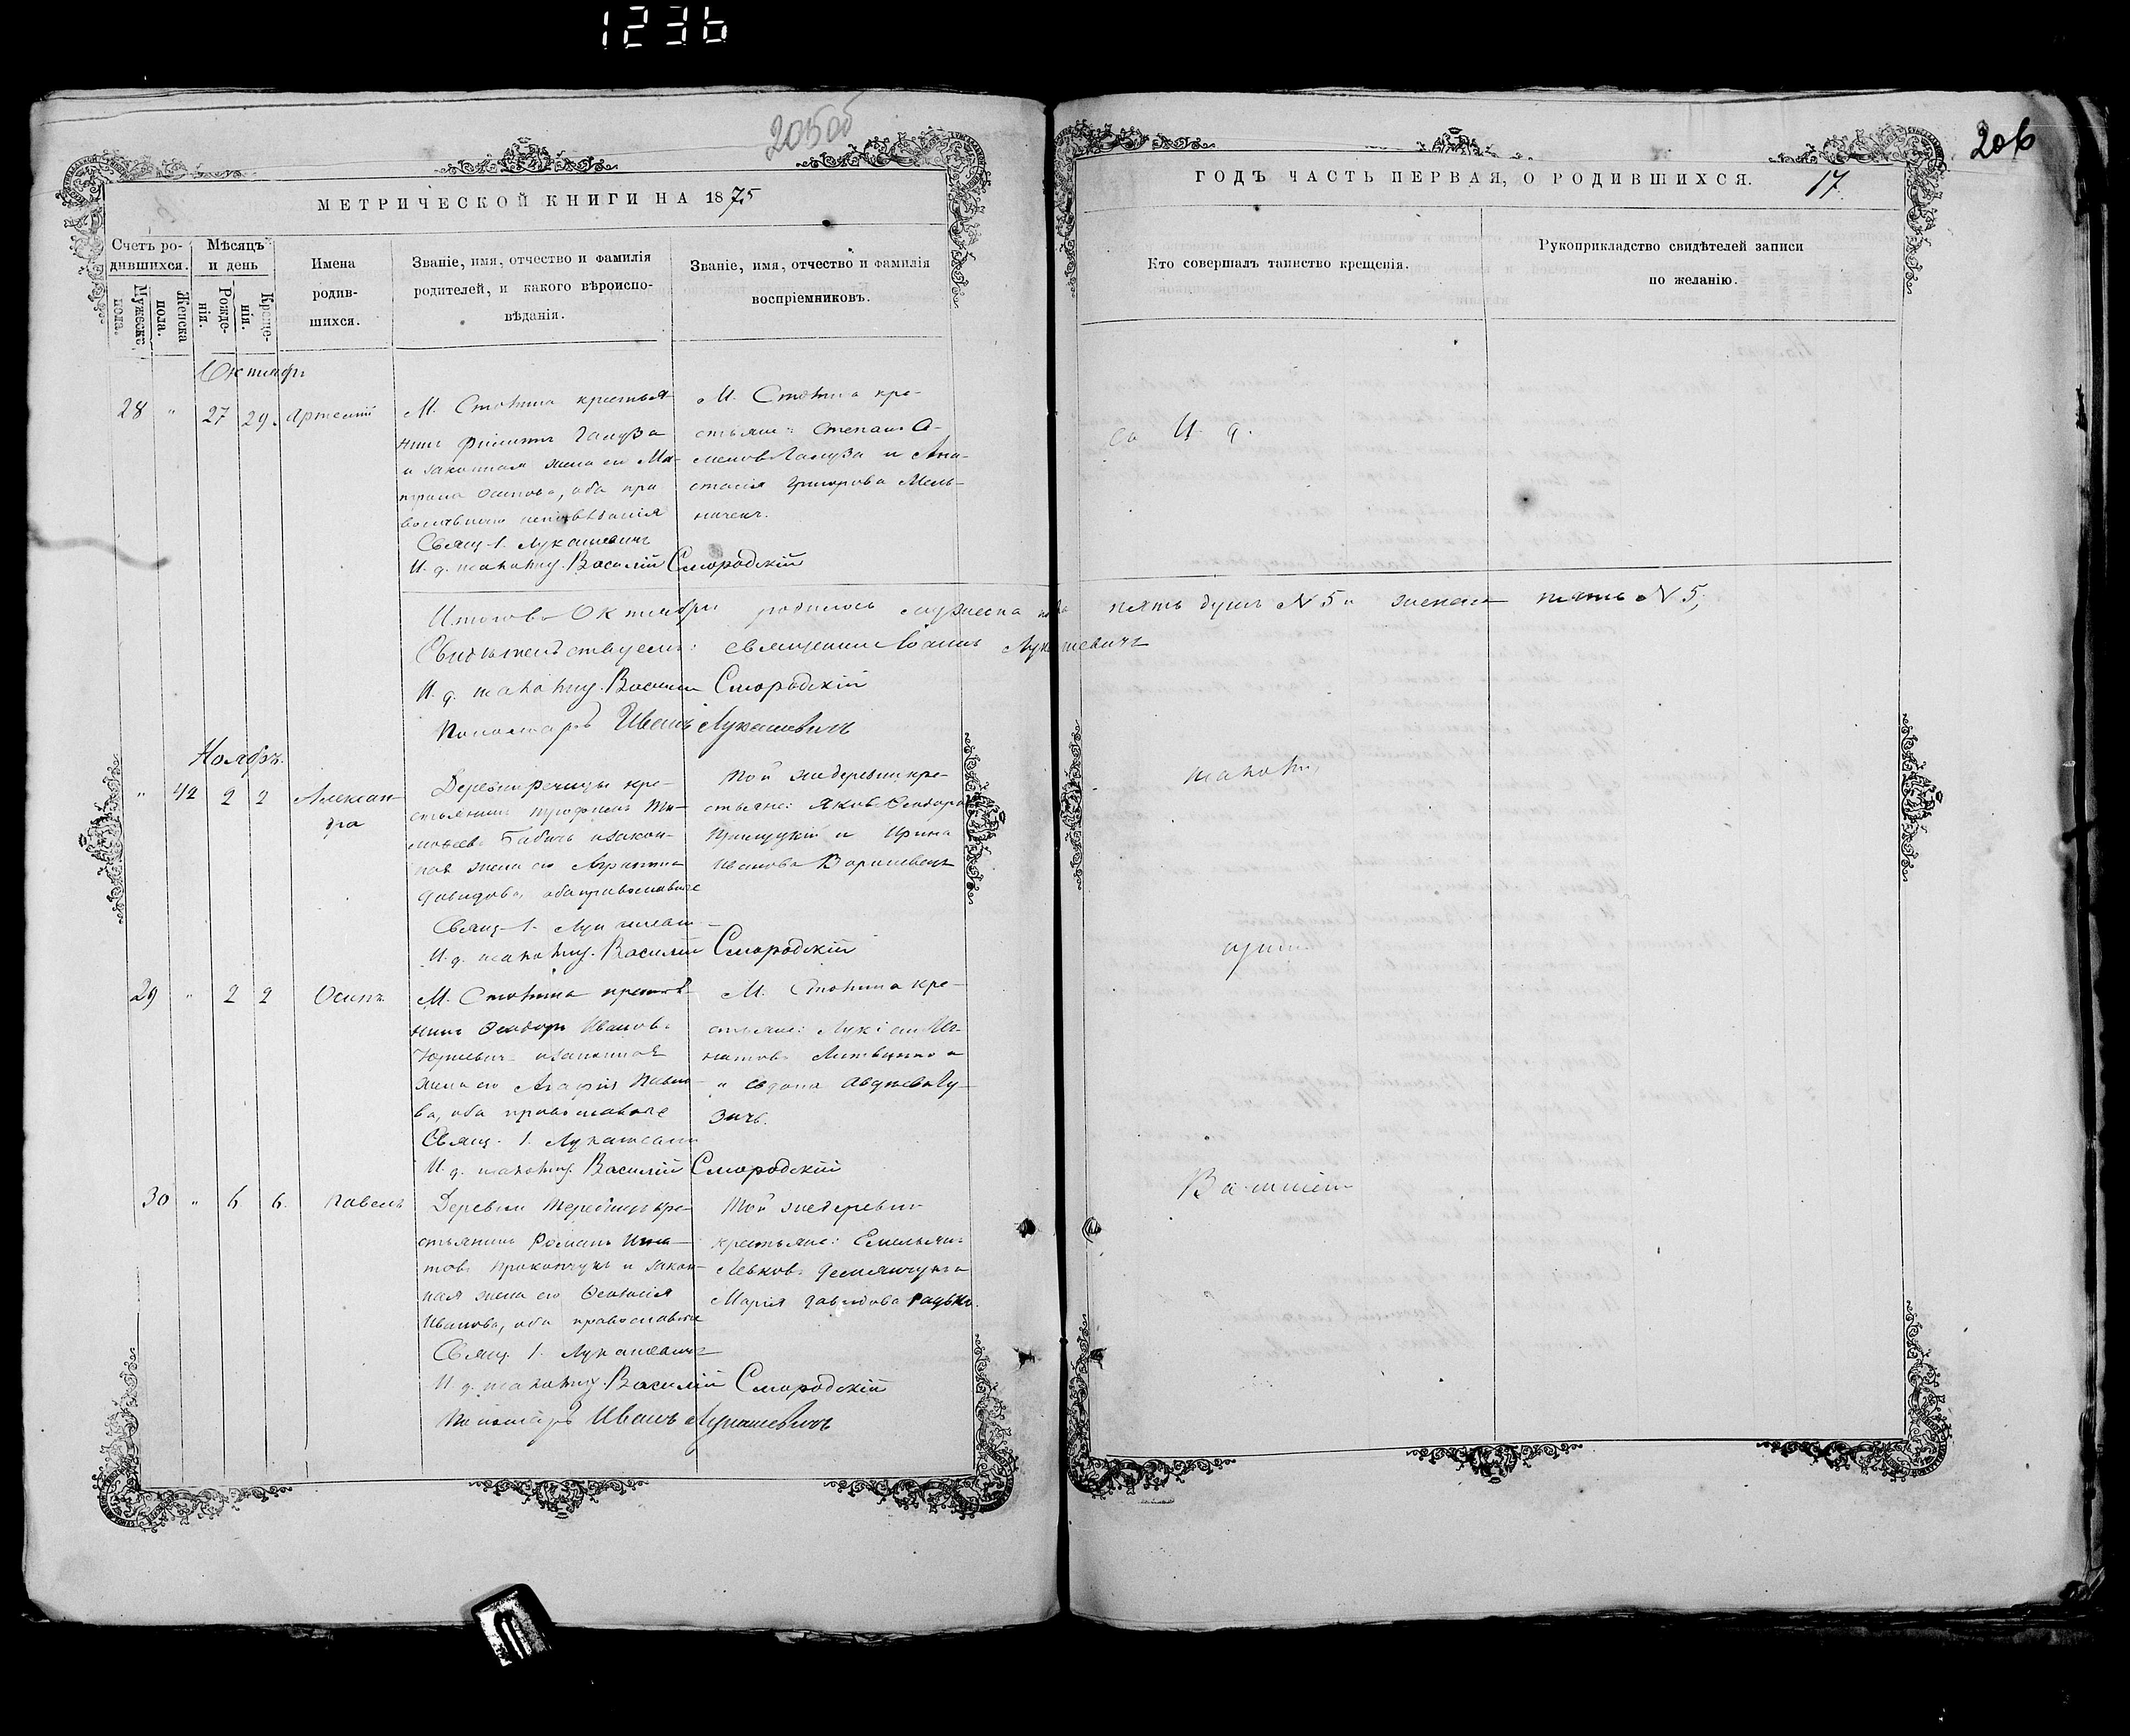 1236
205об
206
МЕТРИЧЕСКОЙ КНИГИ НА 1875
Счетъ ро-
дившихся.
Мужеска пола.
Женска пола.
Мѣсяцъ
и день
Рожде-
нія.
Креще-
нія.
Имена
родив-
шихся.
Званіе, имя, отчество и фамилія
родителей, и какого вѣроиспо-
вѣданія.
Званіе, имя, отчество и фамилія
воспріемниковъ.
Октябрь
28 " 27 29. Артемій
М. Столина крестья-
нинъ Филиппъ Галуза
и законная жена его Ма-
трона Осипова, оба пра
вославнаго исповѣданія
Свящ. І. Лукашевичъ
И. д. псаломщ. Василій Смородскій
М. Столина кре-
стьяне: Степанъ С-
меновъ Галуза и Ана-
стасія Григорова Мель-
ничекъ.
Итого въ Октябрѣ родилось мужеска пола пять душъ N 5 и женска пять N 5,
Свидѣтельствуемъ: Священникъ Іоаннъ Лукашевичъ
И. д. псаломщ. Василій Смородскій
Пономарь Иванъ Лукашевичъ
Ноябрь.
" 42 2 2 Алексан-
дра
Деревни Речицы кре-
стьянинъ Трофимъ Ти-
моѳеевъ Бабичъ и закон-
ная жена его
Давидова, оба православные
Свящ. І.
И. д. псаломщ. Василій Смородскій
Той же деревни кре-
стьяне: Яковъ Ѳеодоровъ
и Ирина
Иванова
29 " 2 2 Осипъ
М. Столина крестья-
нинъ Ѳеодоръ Ивановъ
и законная
жена его Агафія Павло-
ва, оба православные
Свящ. І. Лукашевичъ
И. д. псаломщ. Василій Смородскій
М. Столина кре-
стьяне: Лукіанъ Иг-
натовъ Литвинко
и Евдокія Авдѣева Гу-
зичъ.
30 " 6 6. Павелъ
Деревни Теребличъ кре-
стьянинъ Романъ Игна-
товъ Прокопчукъ и закон-
ная жена его Ѳеодосія
Иванова, оба православные
Свящ. І. Лукашевичъ
И. д. псаломщ. Василій Смородскій
Пономарь Иванъ Лукашевичъ
Той же деревни
крестьяне: Емельянъ
Левковъ Демянчукъ и
Марія Давидова Радько.
ГОДЪ ЧАСТЬ ПЕРВАЯ, О РОДИВШИХСЯ.
17.
Кто совершалъ таинство крещенія.
Рукоприкладство свидѣтелей записи
по желанію.